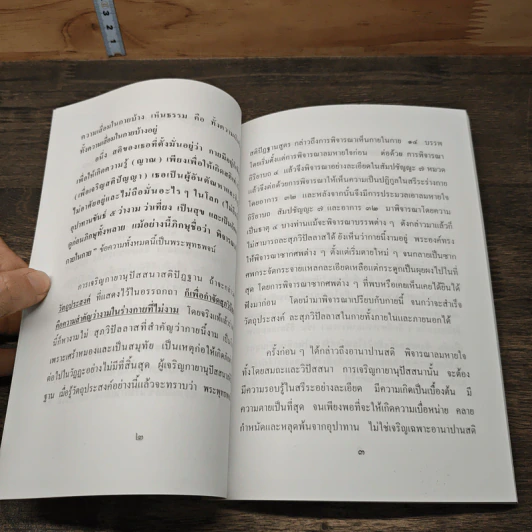 ความเสื่อมในกายบ้าง เห็นธรรม คือ ทั้งความเกิด
ทั้งความเสื่อมในกายบ้างอยู่
อนึ่ง สติของเธอที่ตั้งมั่นอยู่ว่า กายมีอยู่
เพื่อให้เกิดความรู้ (ญาณ) เพียงเพื่อให้เกิดสติ
(เพื่อเจริญสติปัญญา) เธอเป็นผู้อันตัณหา
ไม่อาศัยอยู่และไม่ถือมั่นอะไร ๆ ในโลก
อุปาทานขันธ์ ๕ ว่างาม ว่าเที่ยง เป็นสุข และเป็น
ดูก่อนภิกษุทั้งหลาย แม้อย่างนี้ภิกษุชื่อว่า
กายในกาย" ข้อความทั้งหมดนี้เป็นพระพุทธพจน์
การเจริญกายานุปัสสนาสติปัฏฐาน ถ้าจะกล่าวถึง
วัตถุประสงค์ ที่แสดงไว้ในอรรถกถา ก็เพื่อกำจัดสุภวิปัลลาส
คือความสำคัญว่างามในร่างกายที่ไม่งาม โดยจริงแท้แล้ว
นี้ก็หางามไม่ สุภวิปัลลาสที่สำคัญว่ากายนี้งาม เป็น
เพราะเศร้าหมองและเป็นสมุทัย เป็นเหตุก่อให้เกิด
ต่อไปในวัฏฏะอย่างไม่มีที่สิ้นสุด ผู้เจริญกายานุปัสสนาสติปัฏ
ฐาน เมื่อรู้วัตถุประสงค์อย่างนี้แล้วจะทราบว่า พระพุทธ
๒
สติปัฏฐานสูตร กล่าวถึงการพิจารณาเห็นกายในกาย ๑๔ บรรพ
โดยเริ่มตั้งแต่การพิจารณาลมหายใจก่อน ต่อด้วย การพิจารณา
อิริยาบถ ๔ แล้วจึงพิจารณาอย่างละเอียดในสัมปชัญญะ ๗ หมวด
แล้วจึงต่อด้วยการพิจารณาให้เห็นความเป็นปฏิกูลในสรีระร่างกาย
โดยอาการ ๓๒ และหลังจากนั้นจึงมีการประมวลเอาลมหายใจ
อิริยาบถ สัมปชัญญะ ๗ และอาการ ๓๒ มาพิจารณาโดยความ
เป็นธาตุ ๔ บางท่านแม้จะพิจารณาบรรพต่าง ๆ ดังกล่าวมาแล้วก็
ไม่สามารถละสุภวิปัลลาสได้ ยังเห็นว่ากายนี้งามอยู่ พระองค์ทรง
ให้พิจารณาซากศพต่าง ๆ ตั้งแต่เริ่มตายใหม่ ๆ จนกลายเป็นซาก
ศพกระจัดกระจายแหลกละเอียดเหลือแต่กระดูกเป็นผุยผงไปในที่
สุด โดยการพิจารณาซากศพต่าง ๆ ที่พบหรือเคยเห็นเคยได้ยินได้
ฟังมาก่อน โดยนำมาพิจารณาเปรียบกับกายนี้ จนกว่าจะสำเร็จ
วัตถุประสงค์ ละสุภวิปัลลาสในกายทั้งภายในและภายนอกได้
ครั้งก่อน ๆ ได้กล่าวถึงอานาปานสติ พิจารณาลมหายใจ
ทั้งโดยสมถะและวิปัสสนา การเจริญกายานุปัสสนานั้น จะต้อง
มีความรอบรู้ในสรีระอย่างละเอียด มีความเกิดเป็นเบื้องต้น มี
ความตายเป็นที่สุด จนเพียงพอที่จะให้เกิดความเบื่อหน่าย คลาย
กำหนัดและหลุดพ้นจากอุปาทาน ไม่ใช่เจริญเฉพาะอานาปานสติ
๓